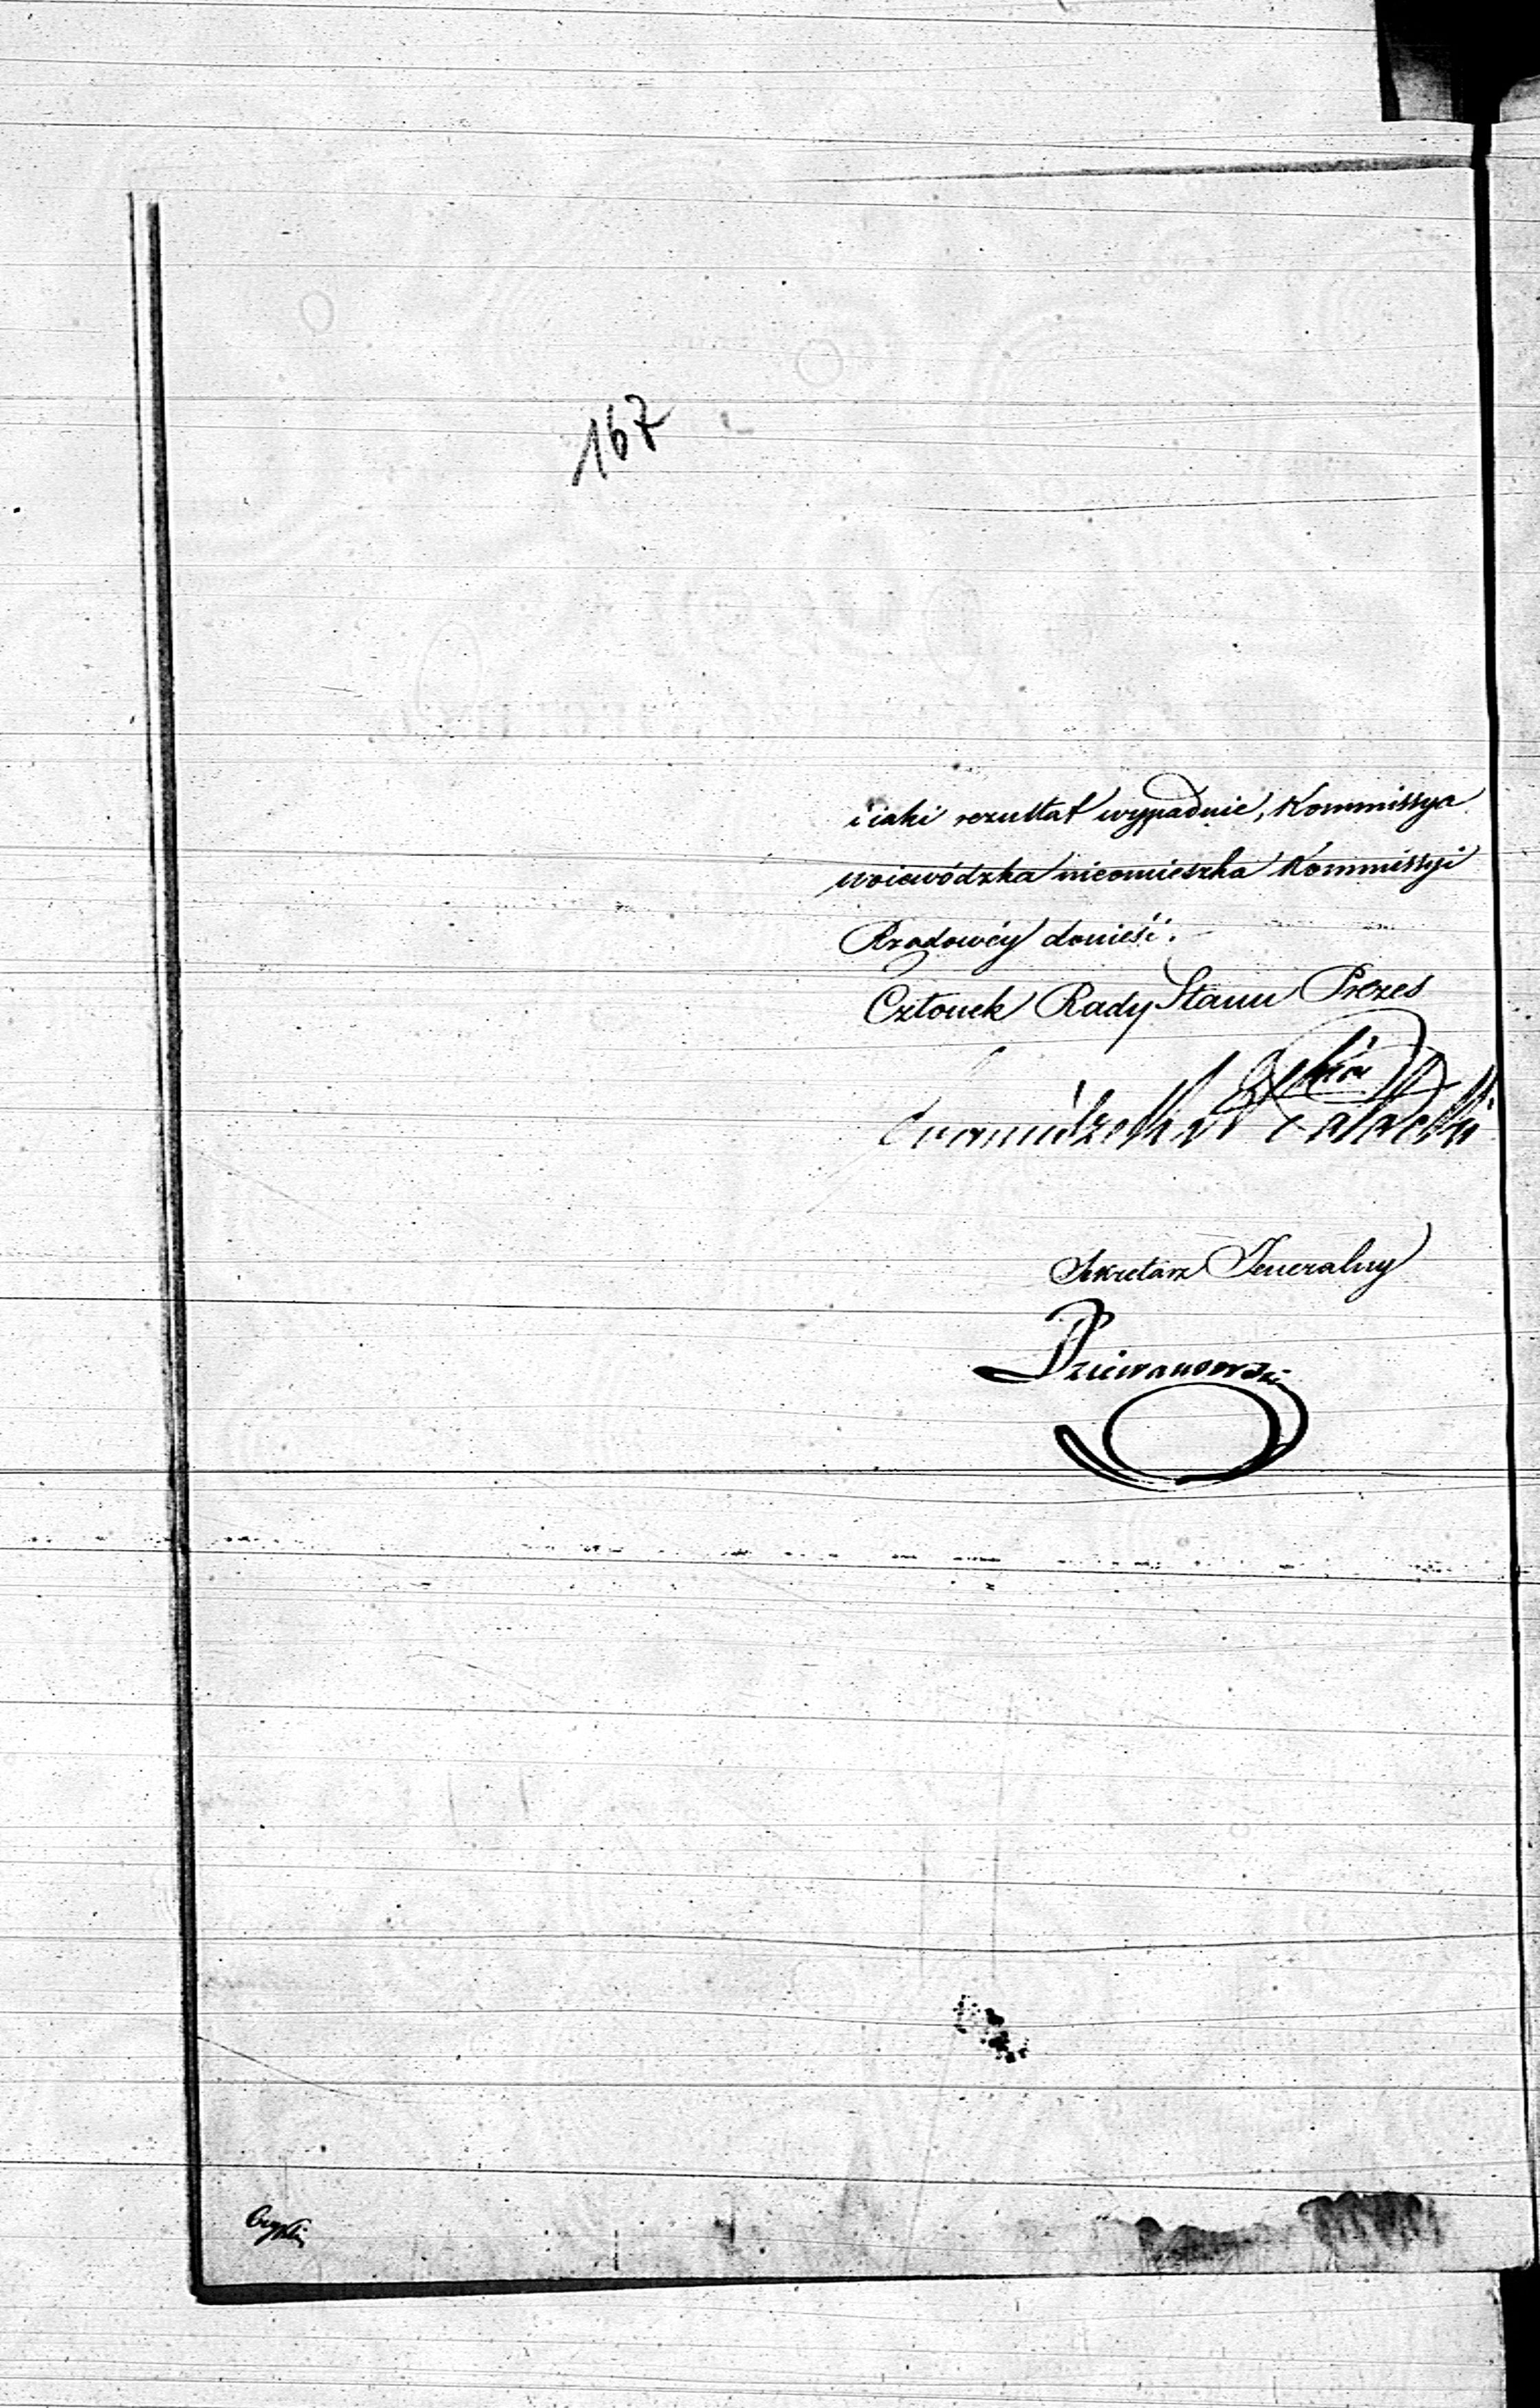 167
i iaki rezultat wypadnie, Kommissya
woiewódzka nieomieszka Kommissyi
Rządowéy donieść.
Członek Rady Stanu Prezes
Sekretarz Jeneralny
Dziewanowski